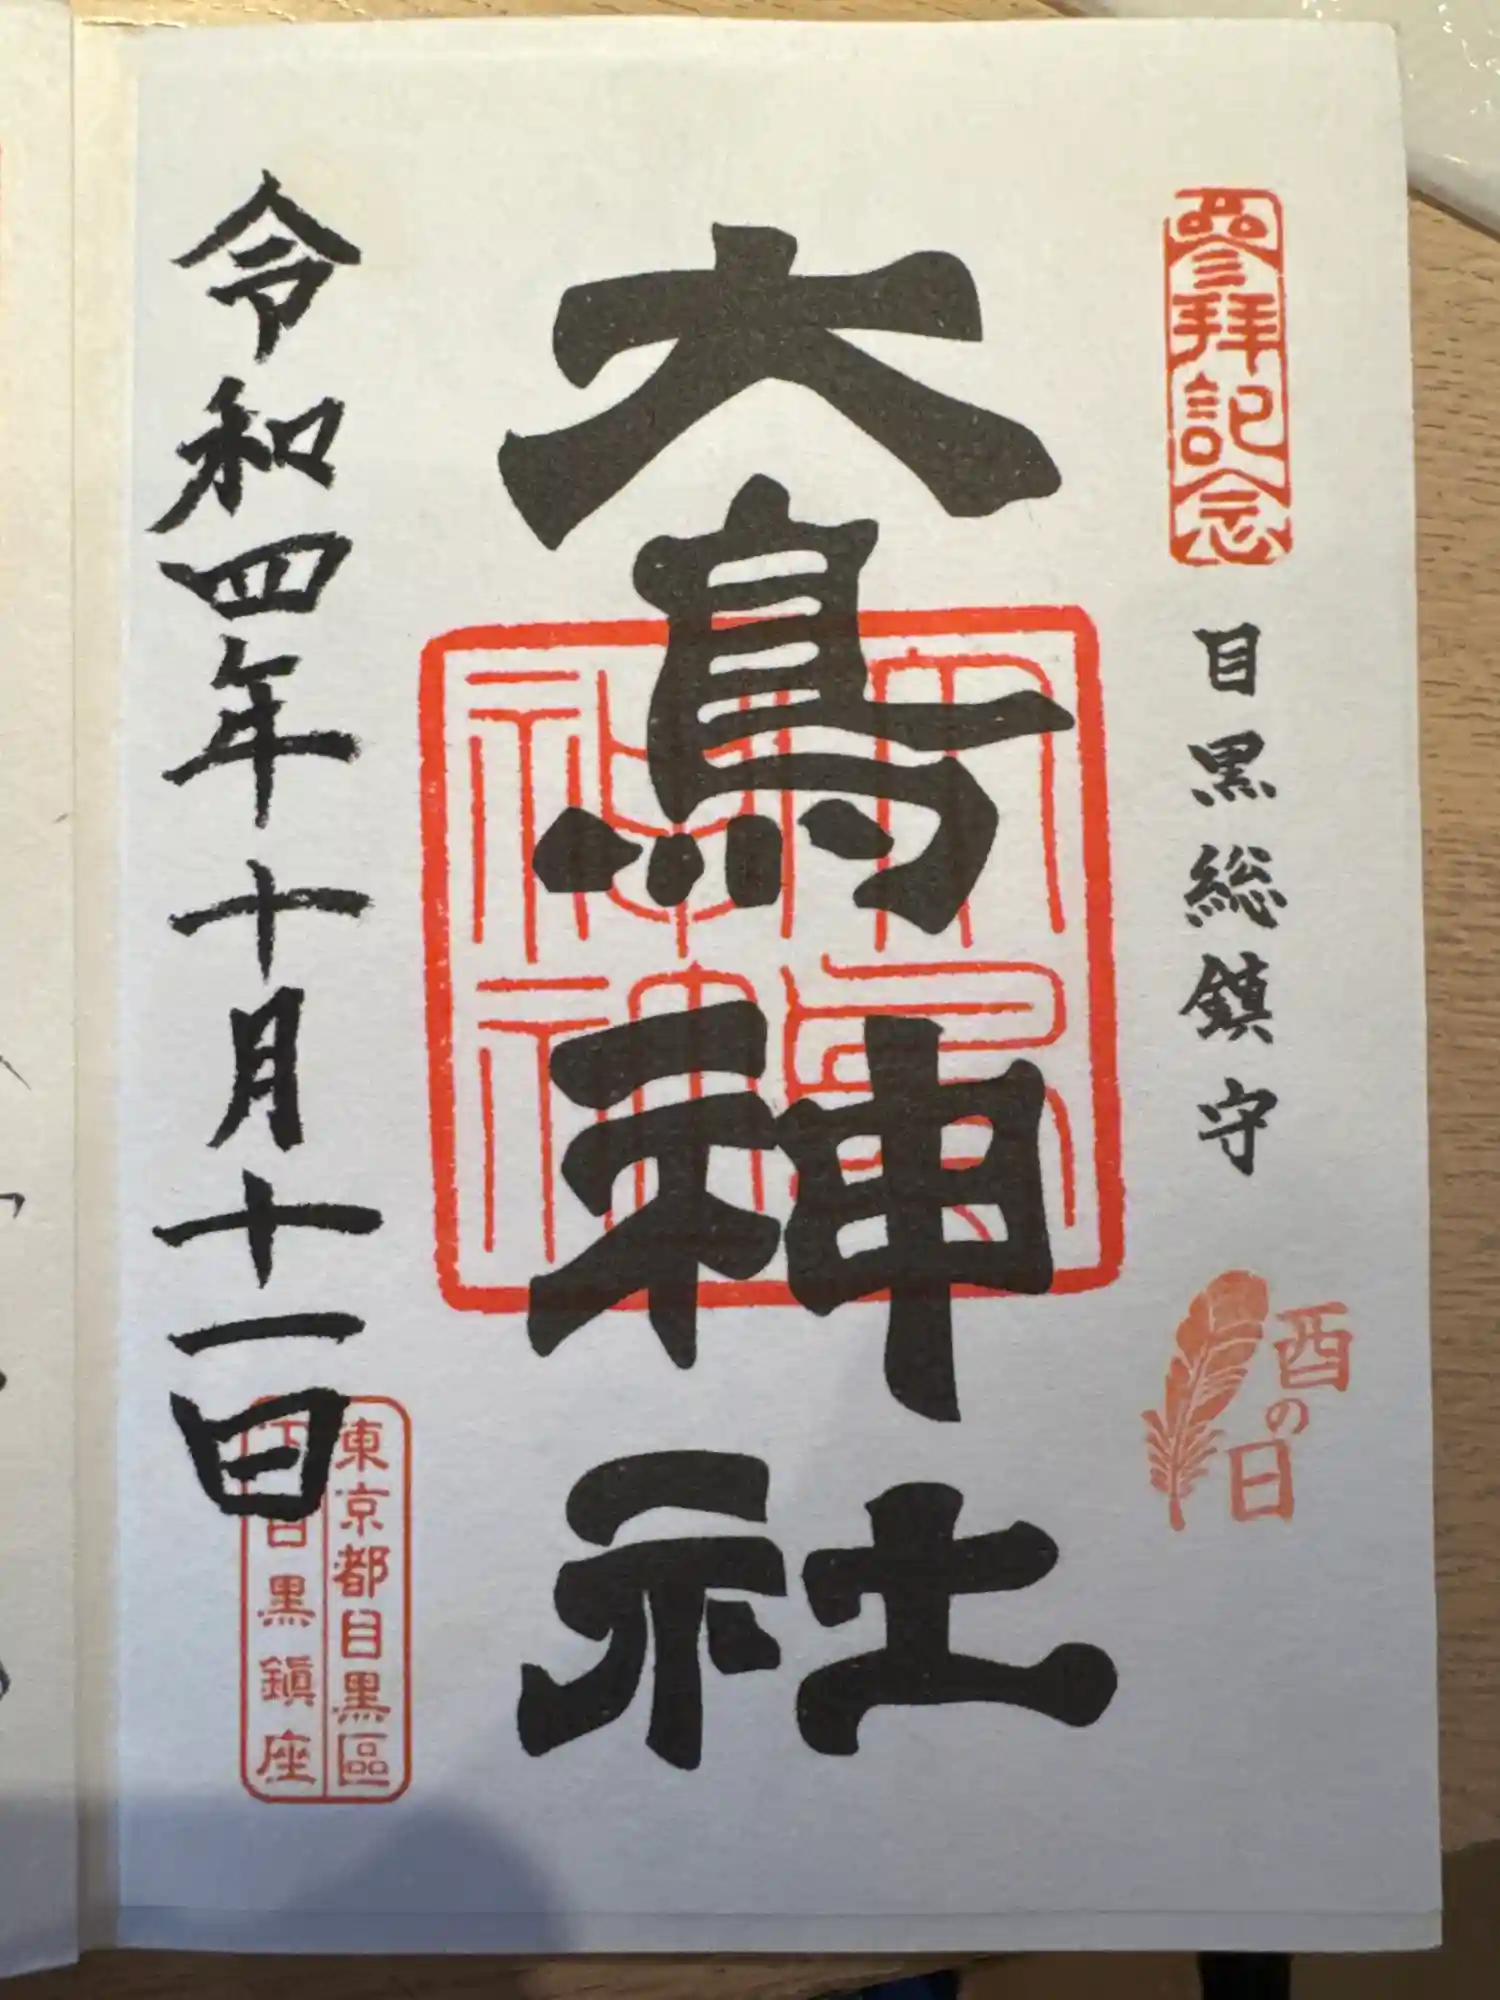 參拜記念
目黒総鎮守
酉の日
大鳥神社
令和四年十月十一日
東京都目黒區
下目黒鎮座